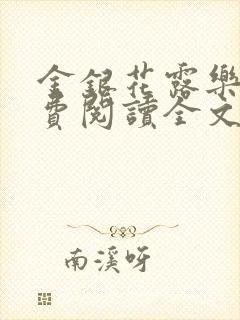 金銀花露樂
費閱讀全文
南溪呀